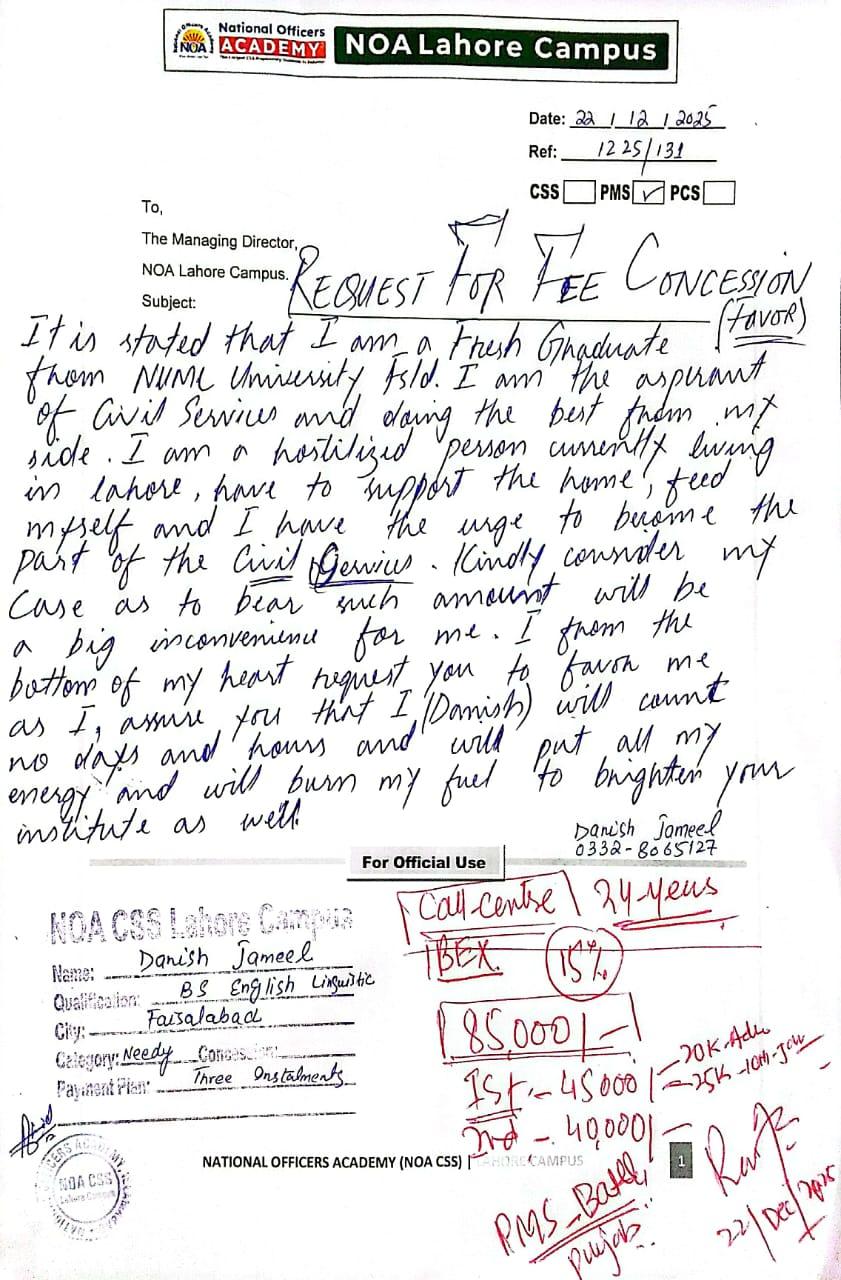 National Officers
ACADEMY
NOA
NOA Lahore Campus
Date: 22 / 12 / 2025
Ref: 1225/131
CSS PMS ✓ PCS
To,
The Managing Director,
NOA Lahore Campus.
Subject: REQUEST FOR FEE CONCESSION
(FAVOR)
It is stated that I am a Fresh Graduate
from NUML University Fsld. I am the aspirant
of Civil Services and doing the best from my
side. I am a hostilized person currently living
in lahore, have to support the home, feed
myself and I have the urge to become the
part of the Civil Services. Kindly consider my
case as to bear such amount will be
a big inconvenience for me. I from the
bottom of my heart request you to favor me
as I, assure you that I (Danish) will count
no days and hours and will put all my
energy and will burn my fuel to brighten your
institute as well.
Danish Jameel
0332-8065127
For Official Use
NOA CSS Lahore Campus
Name: Danish Jameel
Qualification: BS English Linguistic
City: Faisalabad
Category: Needy Concession:
Payment Plan: Three Instalments
Call-Centre 24-years
IBEX 15%
85,000/-
1st - 45000/- 20K-Adm
25K-10th-Jan
2nd - 40,000/-
NATIONAL OFFICERS ACADEMY (NOA CSS) | LAHORE CAMPUS
1
PMS-
Punjab
22/Dec/2025
NOA CSS
Lahore Campus